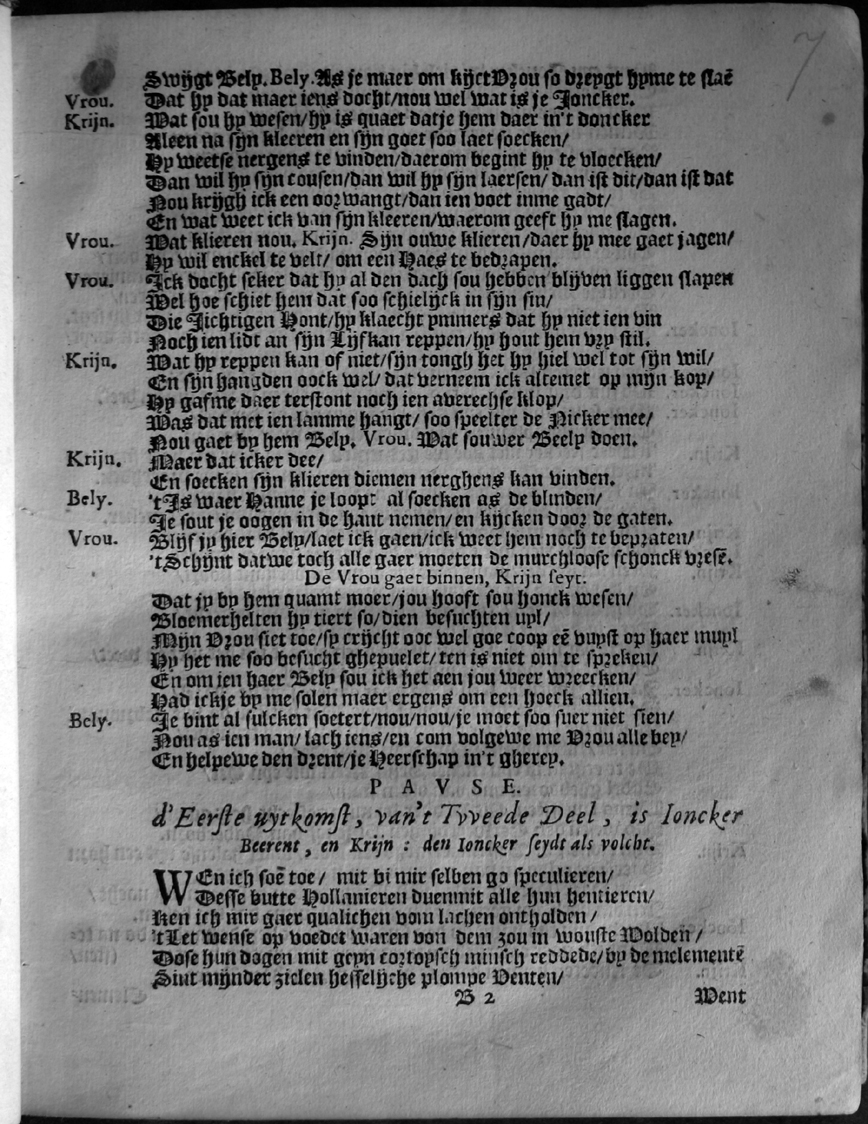 7
Swijgt Bely. Bely. As je maer om kijct Vrou so dreygt hyme te slaē
Vrou. Dat hy dat maer iens docht/nou wel wat is je Joncker.
Krijn. Wat sou hy wesen/hy is quaet datje hem daer in't doncker
Aleen na sijn kleeren en sijn goet soo laet soecken/
Hy weetse nergens te vinden/daerom begint hy te vloecken/
Dan wil hy sijn cousen/dan wil hy sijn laersen/ dan ist dit/dan ist dat
Nou krijgh ick een oorwangt/dan ien voet inme gadt/
En wat weet ick van sijn kleeren/waerom geeft hy me slagen.
Vrou. Wat klieren nou. Krijn. Sijn ouwe klieren/daer hy mee gaet jagen/
Hy wil enckel te velt/ om een Haes te bedrapen.
Vrou. Ick docht seker dat hy al den dach sou hebben blijven liggen slapen
Wel hoe schiet hem dat soo schielijck in sijn sin/
Die Jichtigen Hont/hy klaecht ymmers dat hy niet ien vin
Noch ien lidt an sijn Lijf kan reppen/hy hout hem vry stil.
Krijn. Wat hy reppen kan of niet/sijn tongh het hy hiel wel tot sijn wil/
En sijn hangden oock wel/ dat verneem ick altemet op mijn kop/
Hy gafme daer terstont noch ien averechse klop/
Was dat met ien lamme hangt/ soo speelter de Nicker mee/
Nou gaet by hem Bely. Vrou. Wat souwer Beely doen.
Krijn. Maer dat icker dee/
En soecken sijn klieren diemen nerghens kan vinden.
Bely. 't Is waer Hanne je loopt al soecken as de blinden/
Je sout je oogen in de hant nemen/en kijcken door de gaten.
Vrou. Blijf jy hier Bely/laet ick gaen/ick weet hem noch te bepraten/
't Schijnt datwe toch alle gaer moeten de murchloose schonck vresē.
De Vrou gaet binnen, Krijn seyt.
Dat jy by hem quamt moer/jou hooft sou honck wesen/
Bloemerhelten hy tiert so/dien besuchten uyl/
Mijn Vrou siet toe/sy crijcht ooc wel goe coop eē vuyst op haer muyl
Hy het me soo besucht ghepuelet/ten is niet om te spreken/
En om ien haer Bely sou ick het aen jou weer wreecken/
Had ickje by me solen maer ergens om een hoeck allien.
Bely. Je bint al sulcken soetert/nou/nou/je moet soo suer niet sien/
Nou as ien man/ lach iens/en com volgewe me Vrou alle bey/
En helpewe den drent/je Heerschap in't gherey.
PAVSE.
d'Eerste uytkomst, van't Tvveede Deel, is Ioncker
Beerent, en Krijn: den Ioncker seydt als volcht.
WEn ich soē toe/ mit bi mir selben go speculieren/
Desse butte Hollanieren duenmit alle hun hentieren/
Ken ich mir gaer qualichen vom lachen ontholden/
't Let wense op voedet waren von dem zou in wouste Wolden/
Dose hun dogen mit geyn cortoysch minsch reddede/by de mclementē
Sint mijnder zielen hesselijche plompe Venten/
B 2 Went